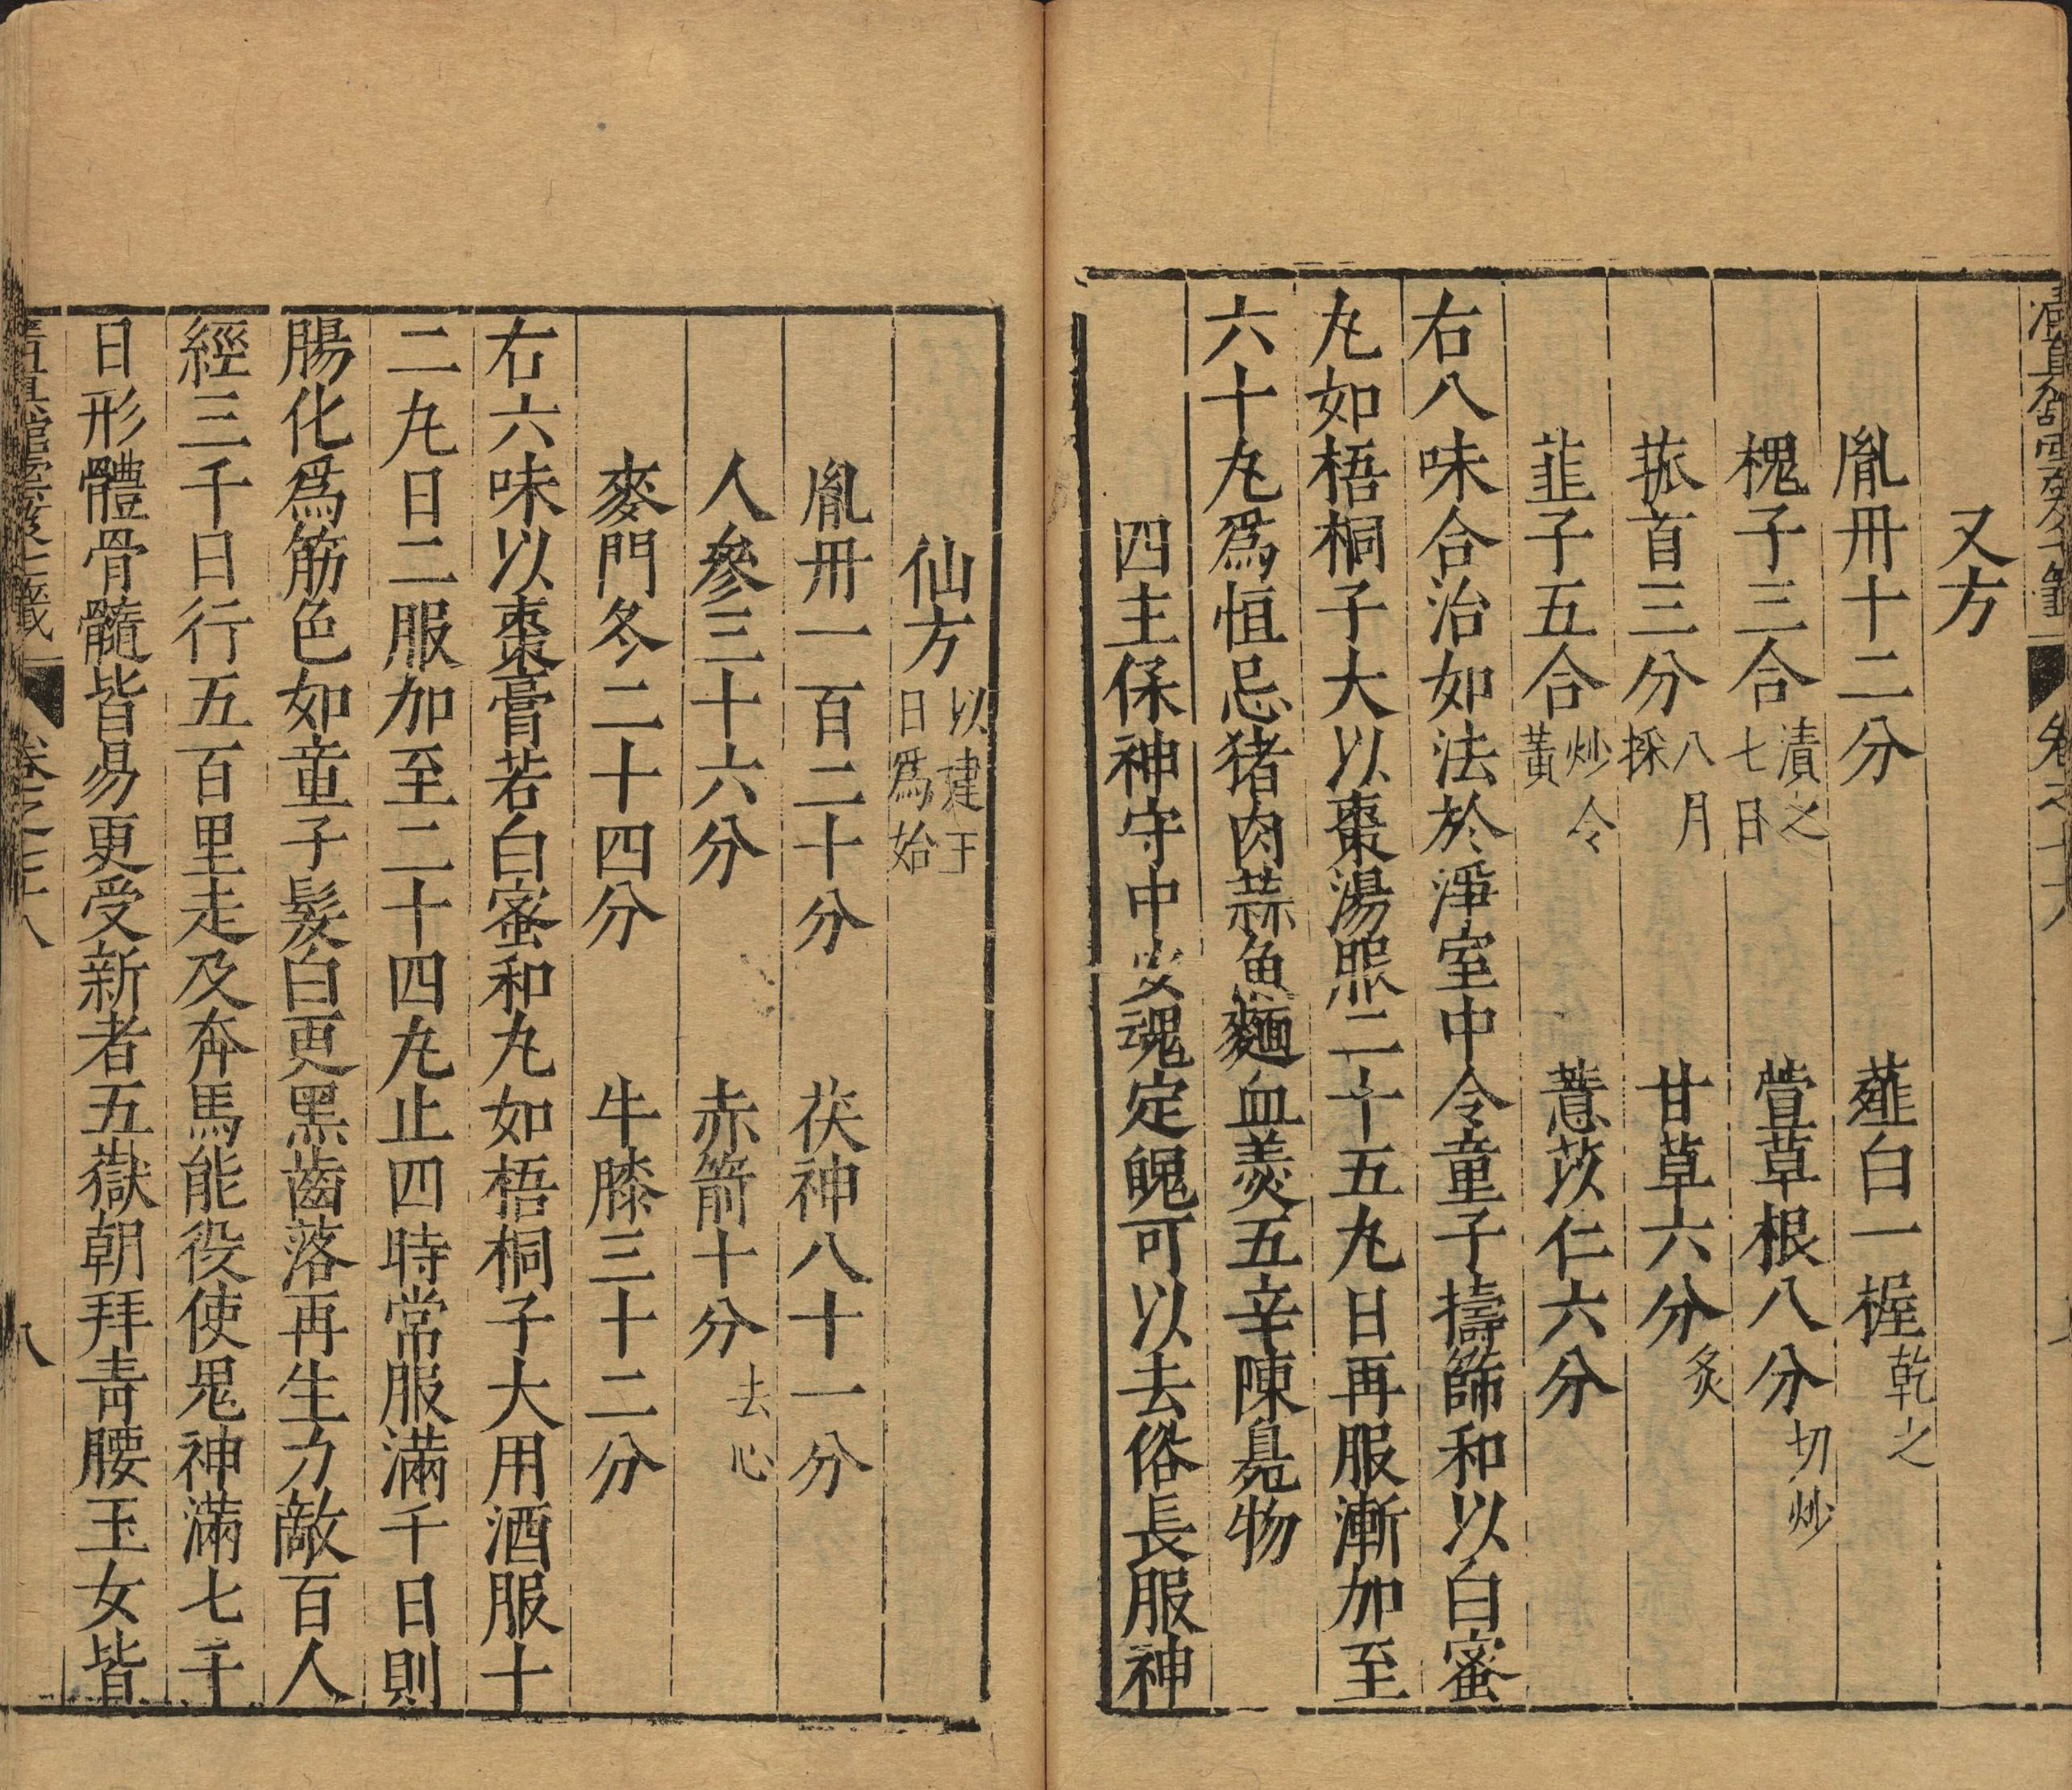 清真館雲笈七籤 卷之七十八
又方
胤丹十二分 薤白一握乾之
槐子三合漬之七日 萱草根八分切炒
菻首三分八月採 甘草六分炙
韭子五合炒令黃 薏苡仁六分
右八味合治如法於淨室中令童子擣篩和以白蜜
丸如梧桐子大以棗湯服二十五丸日再服漸加至
六十丸爲恒忌猪肉蒜魚麵血羹五辛陳臭物
四主保神守中安魂定魄可以去俗長服神
仙方以建王日爲始
胤丹一百二十分 茯神八十一分
人參三十六分 赤箭十分去心
麥門冬二十四分 牛膝三十二分
右六味以棗膏若白蜜和丸如梧桐子大用酒服十
二丸日二服加至二十四丸止四時常服滿千日則
腸化爲筋色如童子髮白更黑齒落再生力敵百人
經三千日行五百里走及奔馬能役使鬼神滿七千
日形體骨髓皆易更受新者五嶽朝拜靑腰玉女皆
清真館雲笈七籤 卷之七十八 八